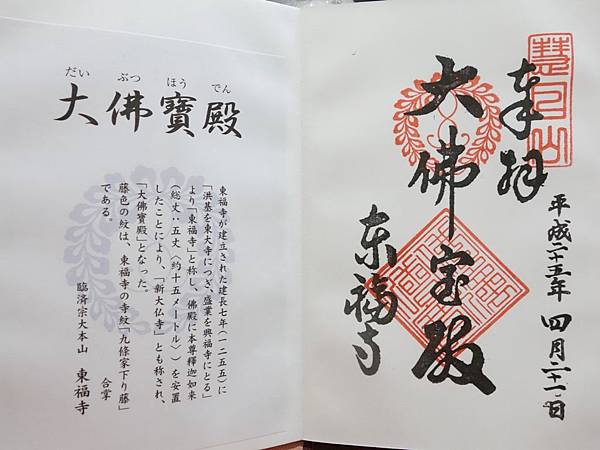 だい ぶつ ほう でん
大佛寶殿
東福寺が建立された建長七年(一二五五)に
「洪基を東大寺につぎ、盛業を興福寺にとる」
より「東福寺」と称し、佛殿に本尊釋迦如来
(総丈:五丈〈約十五メートル〉)を安置
したことにより、「新大仏寺」とも称され、
「大佛寶殿」となった。
藤色の紋は、東福寺の寺紋「九條家下り藤」
である。
合掌
臨済宗大本山 東福寺
平成二十五年 四月二十一日
奉拝
慧日山
大佛宝殿
東福寺